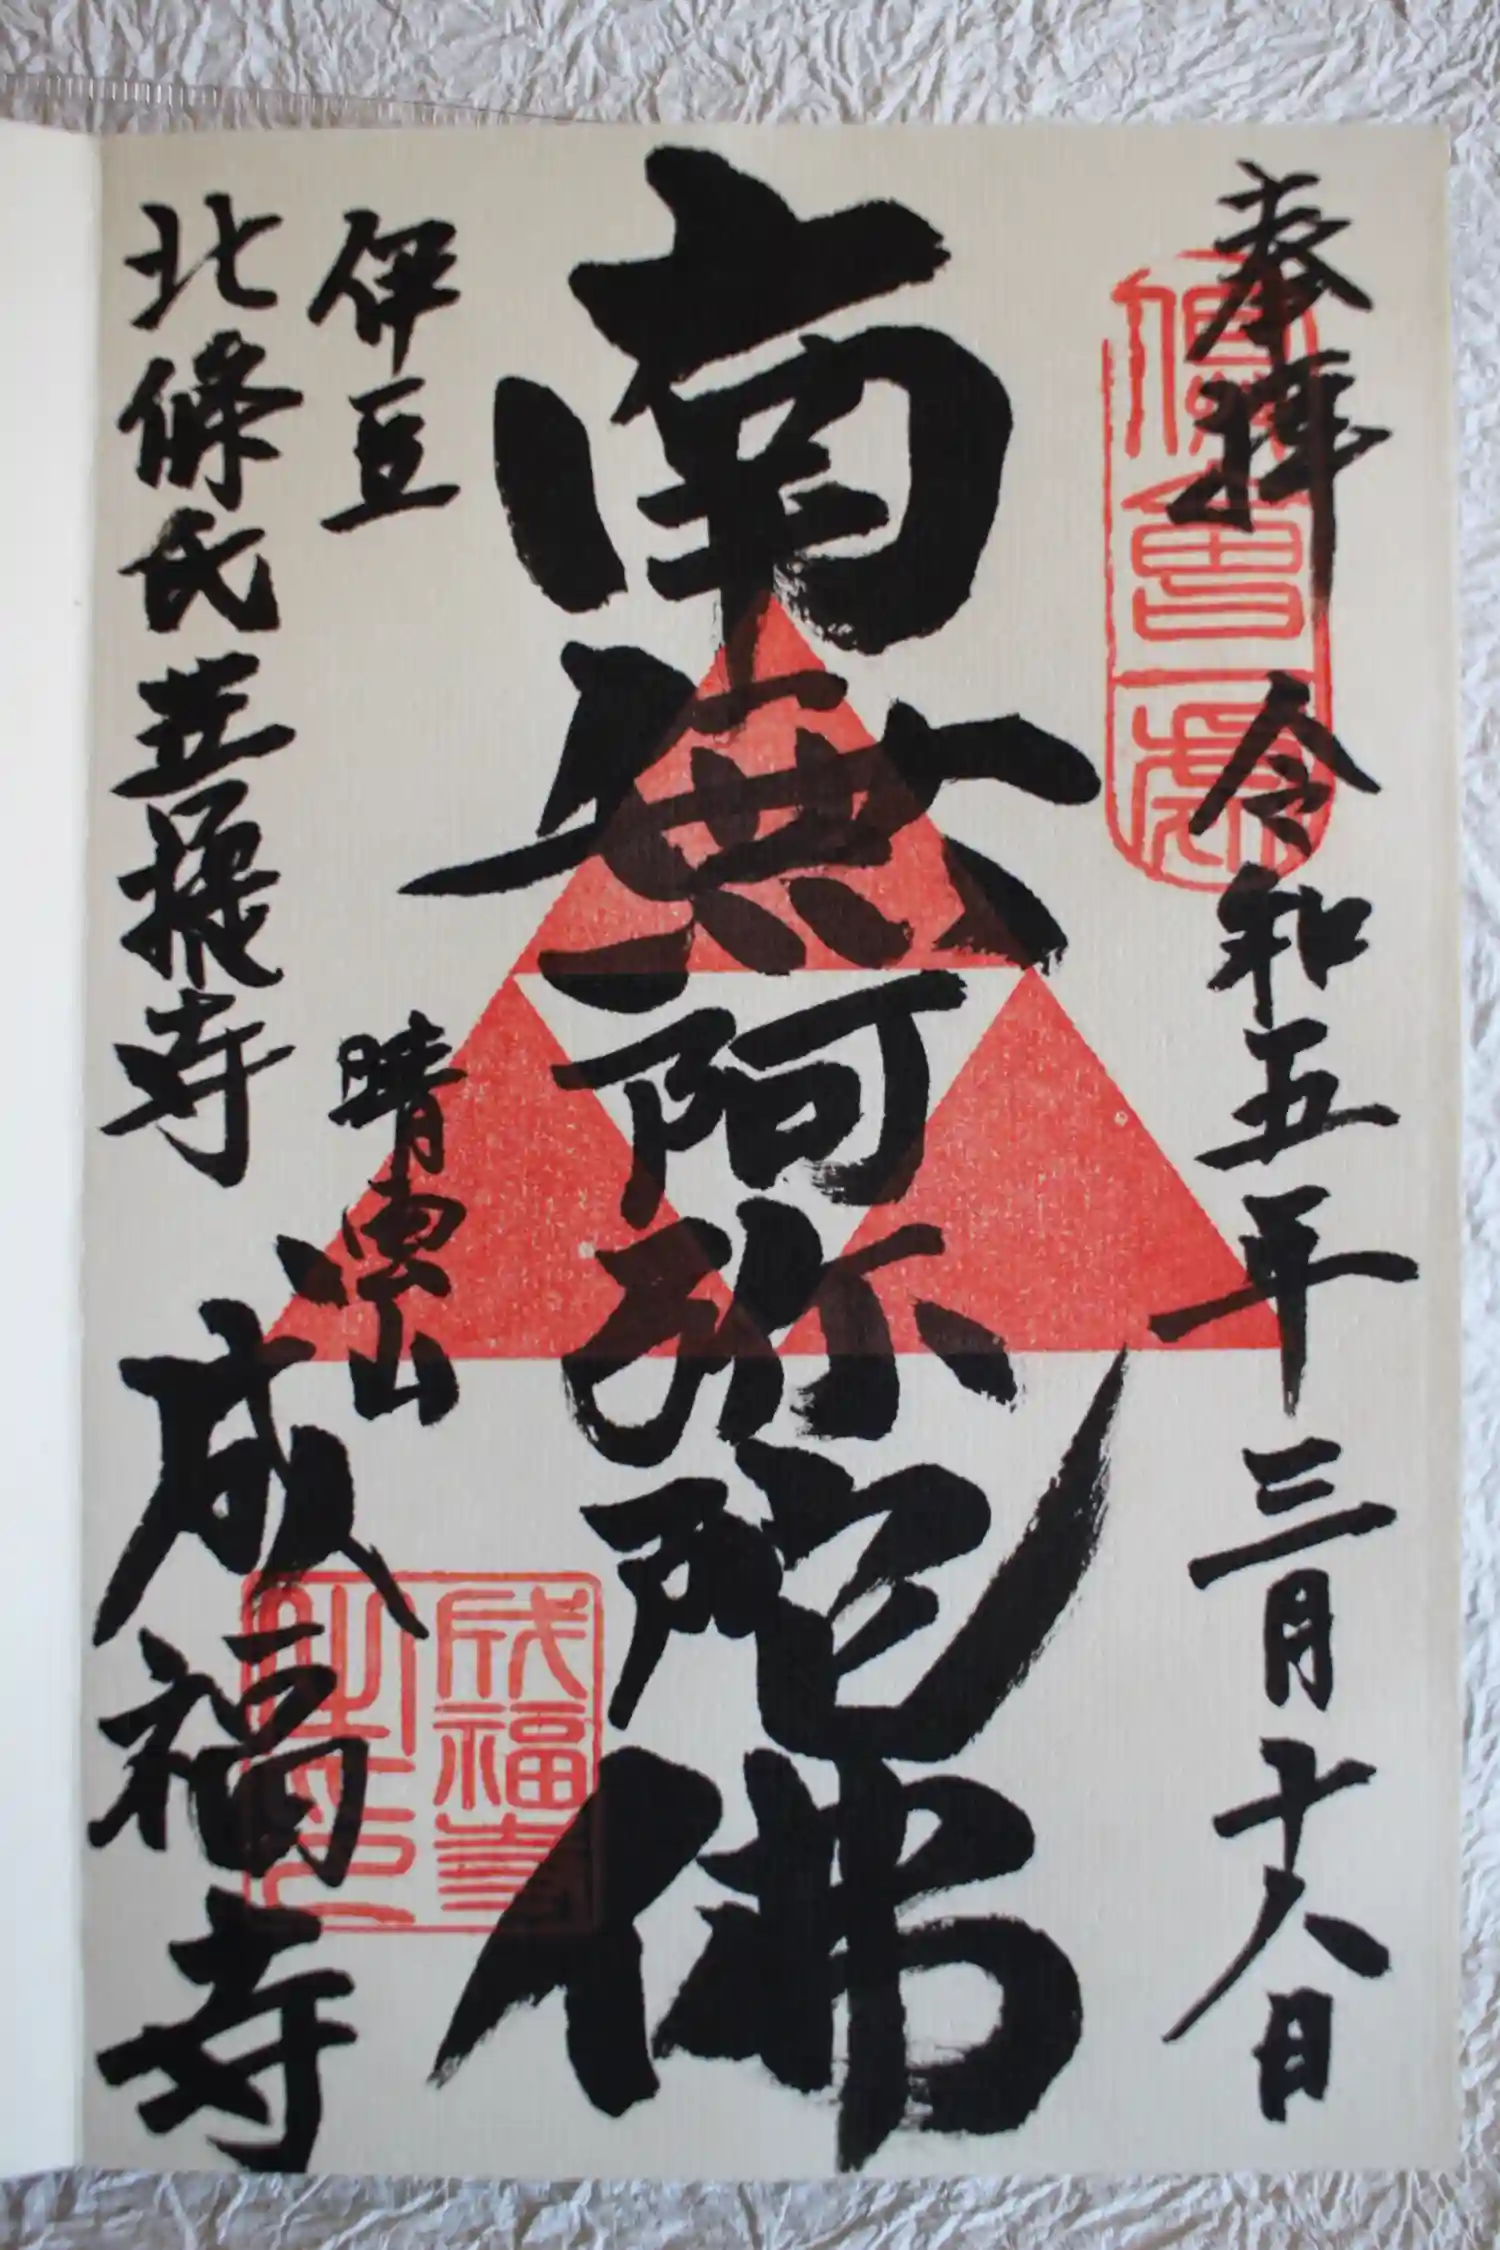 奉拝 令和五年三月十八日
倶會一處
南無阿弥陀佛
伊豆 晴雲山
北條氏菩提寺
成福寺
成福寺